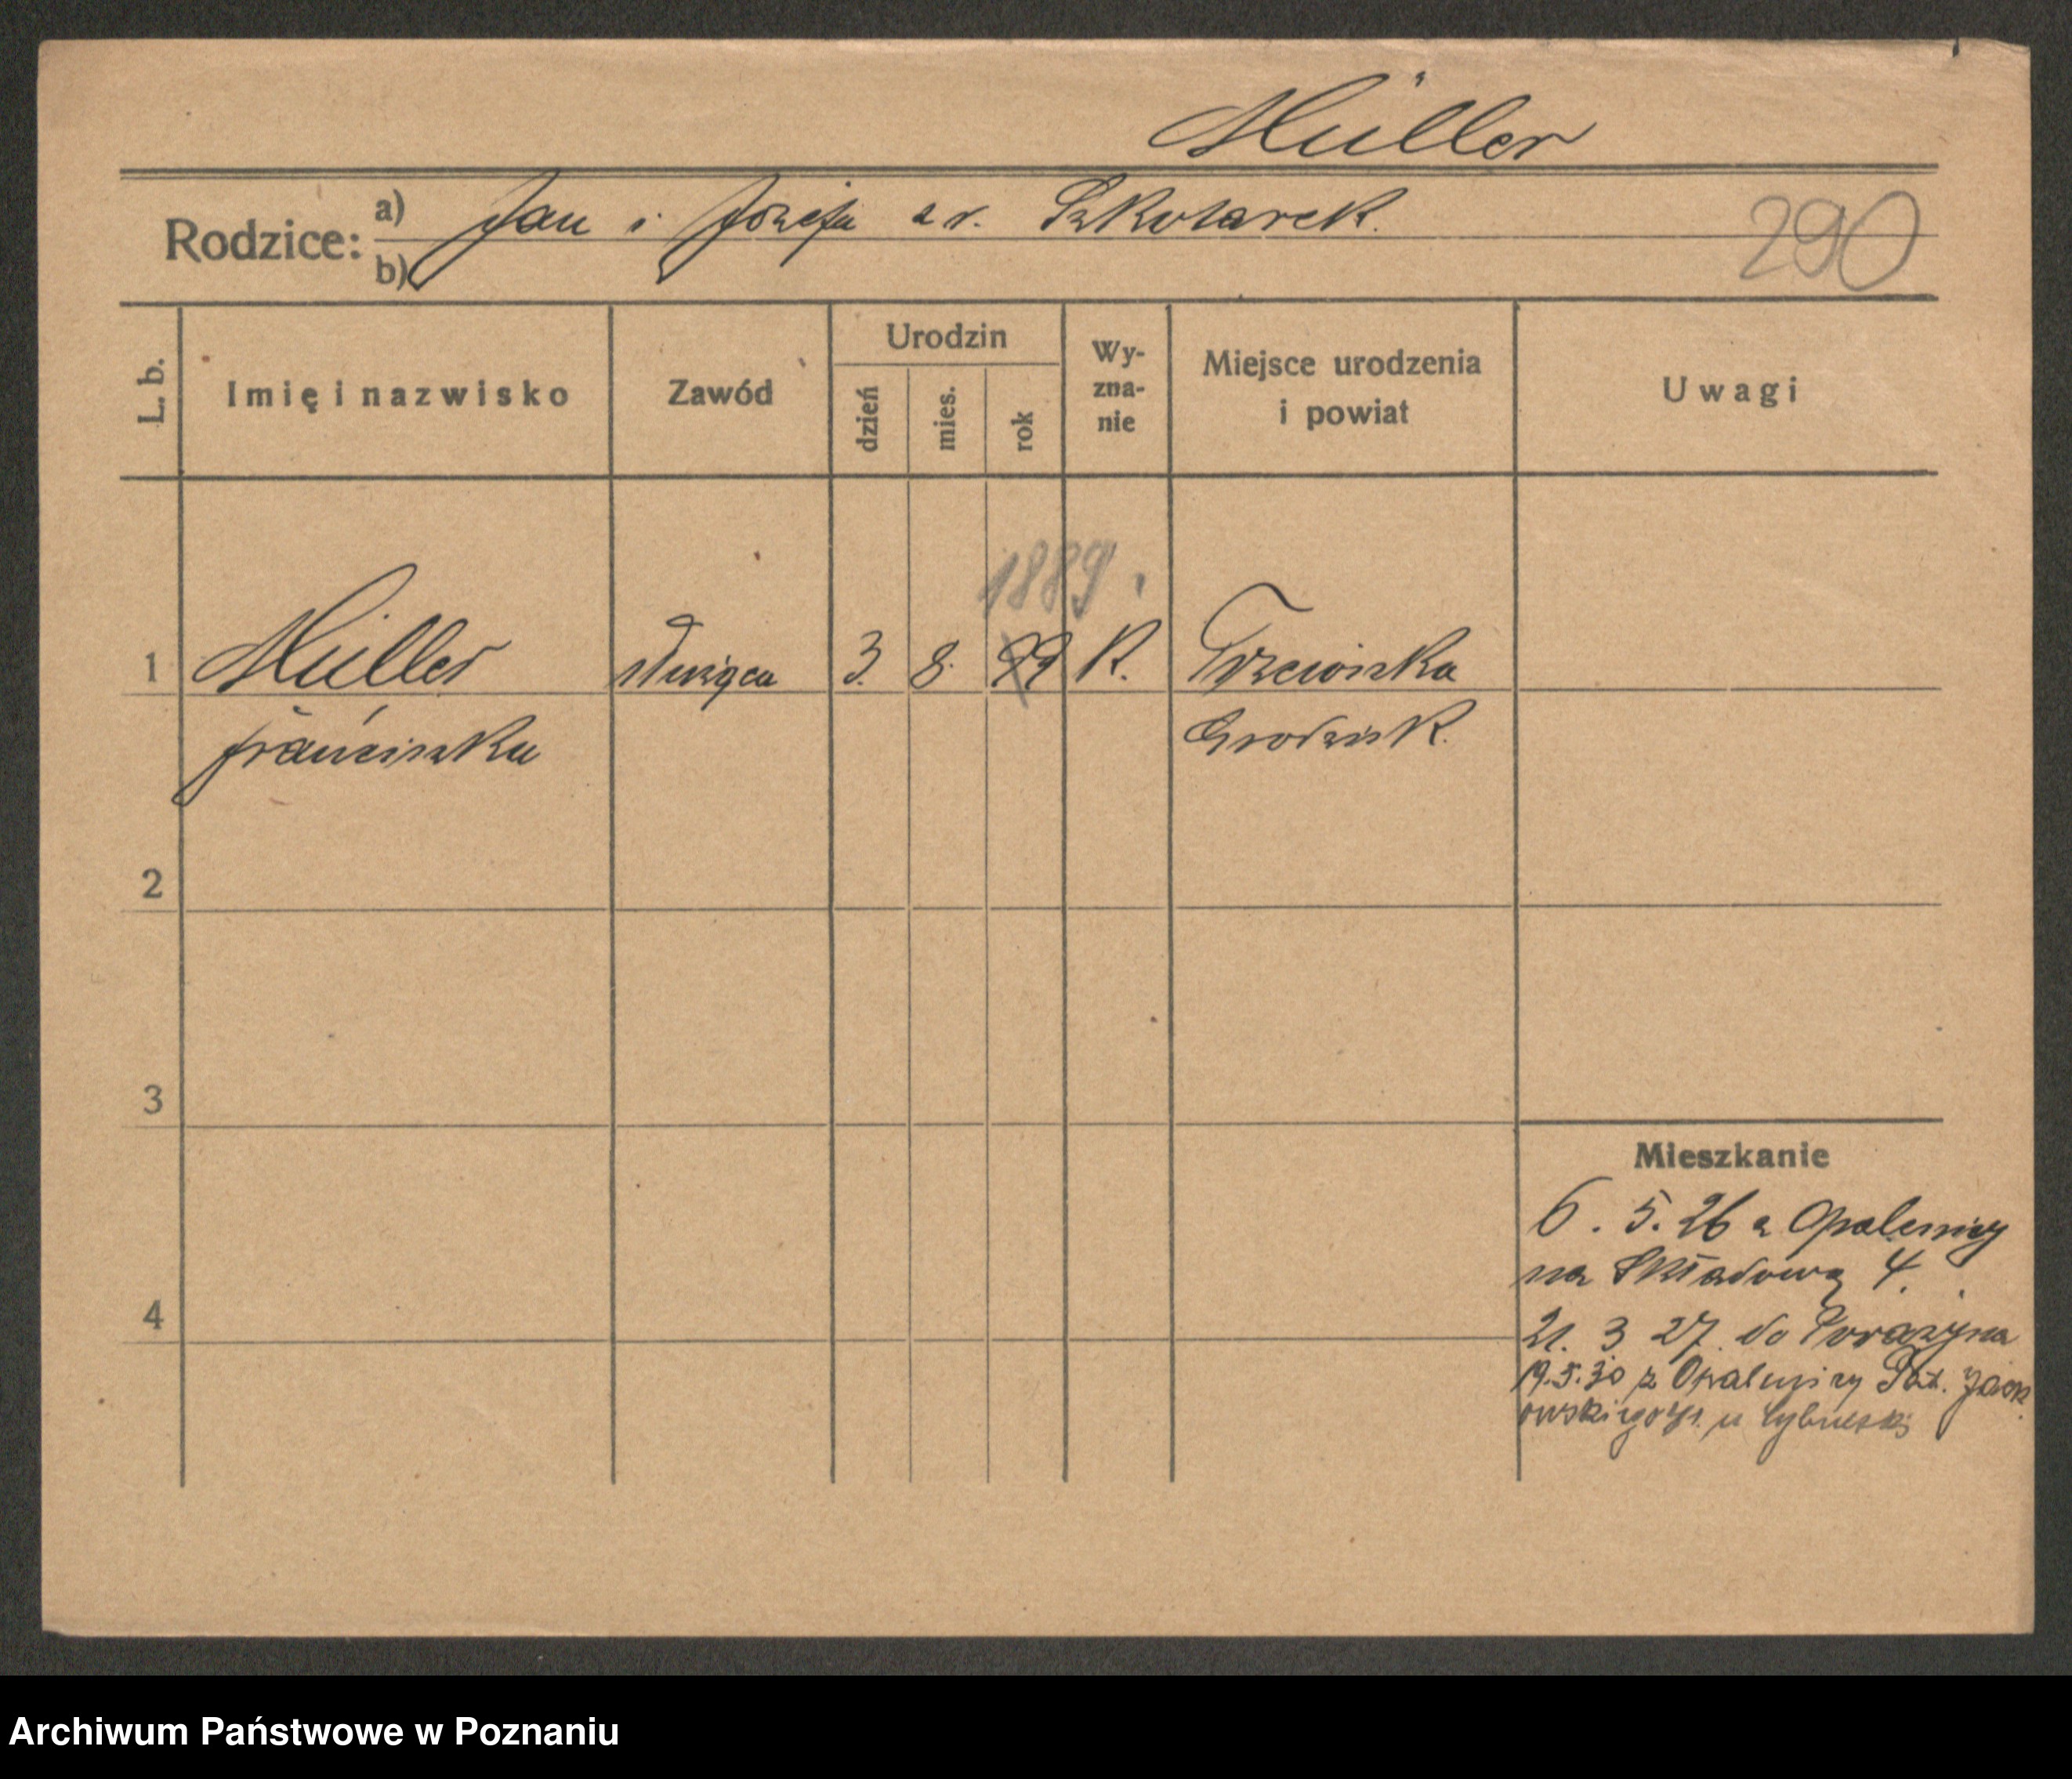 Müller
Rodzice: a) Jan i Józefa z r. Szkolarek.
b)
290
L. b.
Imię i nazwisko
Zawód
Urodzin
dzień
mies.
rok
Wy-
zna-
nie
Miejsce urodzenia
i powiat
Uwagi
1889.
1 Müller służąca 3. 8. 99 K.
Franciszka
Grodzisk.
2
3
4
Mieszkanie
6. 5. 26 z Opalenicy
na Składową 4.
21. 3 27. do Porażyna
19.5.30 z Opalenicy Pat. Jack
owskiego
Archiwum Państwowe w Poznaniu